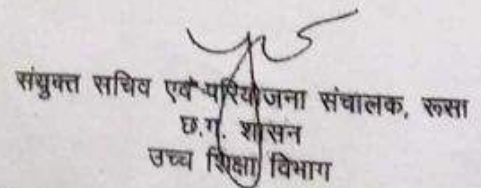 संयुक्त सचिव एवं परियोजना संचालक, रूसा
छ.ग. शासन
उच्च शिक्षा विभाग